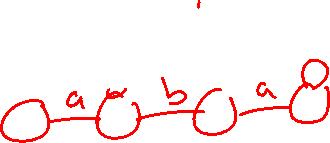 a b a